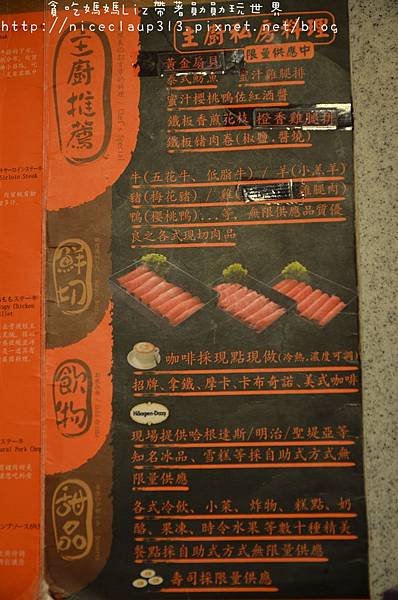 貪吃媽媽Liz帶著勛勛玩世界
http://niceclaup313.pixnet.net/blog
主廚推薦
主廚私房料理
限量供應中
黃金扇貝
泰式魷魚 蜜汁雞腿排
蜜汁櫻桃鴨佐紅酒醬
鐵板香煎花枝 橙香雞腿排
鐵板豬肉卷(椒鹽.醬燒)
牛(五花牛、低脂牛) / 羊(小羔羊)
豬(梅花豬) / 雞 雞腿肉)
鴨(櫻桃鴨)...等,無限供應品質優
良之各式現切肉品
鮮切
咖啡採現點現做(冷熱,濃度可調)
招牌、拿鐵、摩卡、卡布奇諾、美式咖啡
飲物
Häagen-Dazs
現場提供哈根達斯/明治/聖堤亞等
知名冰品、雪糕等採自助式方式無
限量供應
甜品
各式冷飲、小菜、炸物、糕點、奶
酪、果凍、時令水果等數十種精美
餐點採自助式方式無限量供應
壽司採限量供應